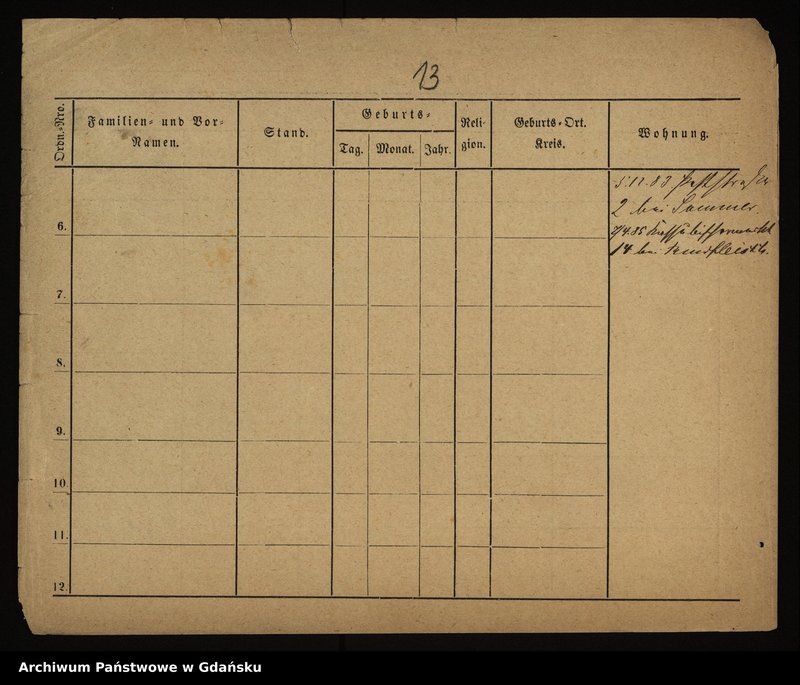 13
Ordn.-Nro.
Familien- und Vor-
Namen.
Stand.
Geburts-
Tag.
Monat.
Jahr.
Reli-
gion.
Geburts-Ort.
Kreis.
Wohnung.
5.11.83
2 bei Sommer
6.
7/4.85
14 bei
7.
8.
9.
10.
11.
12.
Archiwum Państwowe w Gdańsku